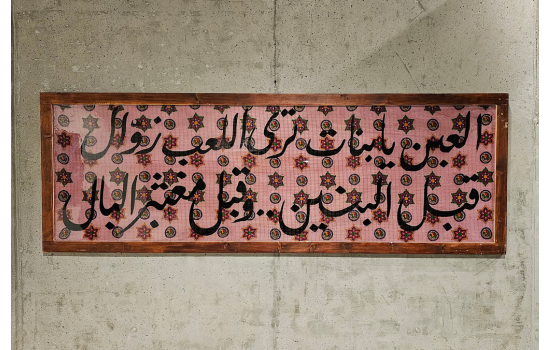 العبن يابنات ترى اللعب زوال
قبل البنين .. وقبل معثر البال